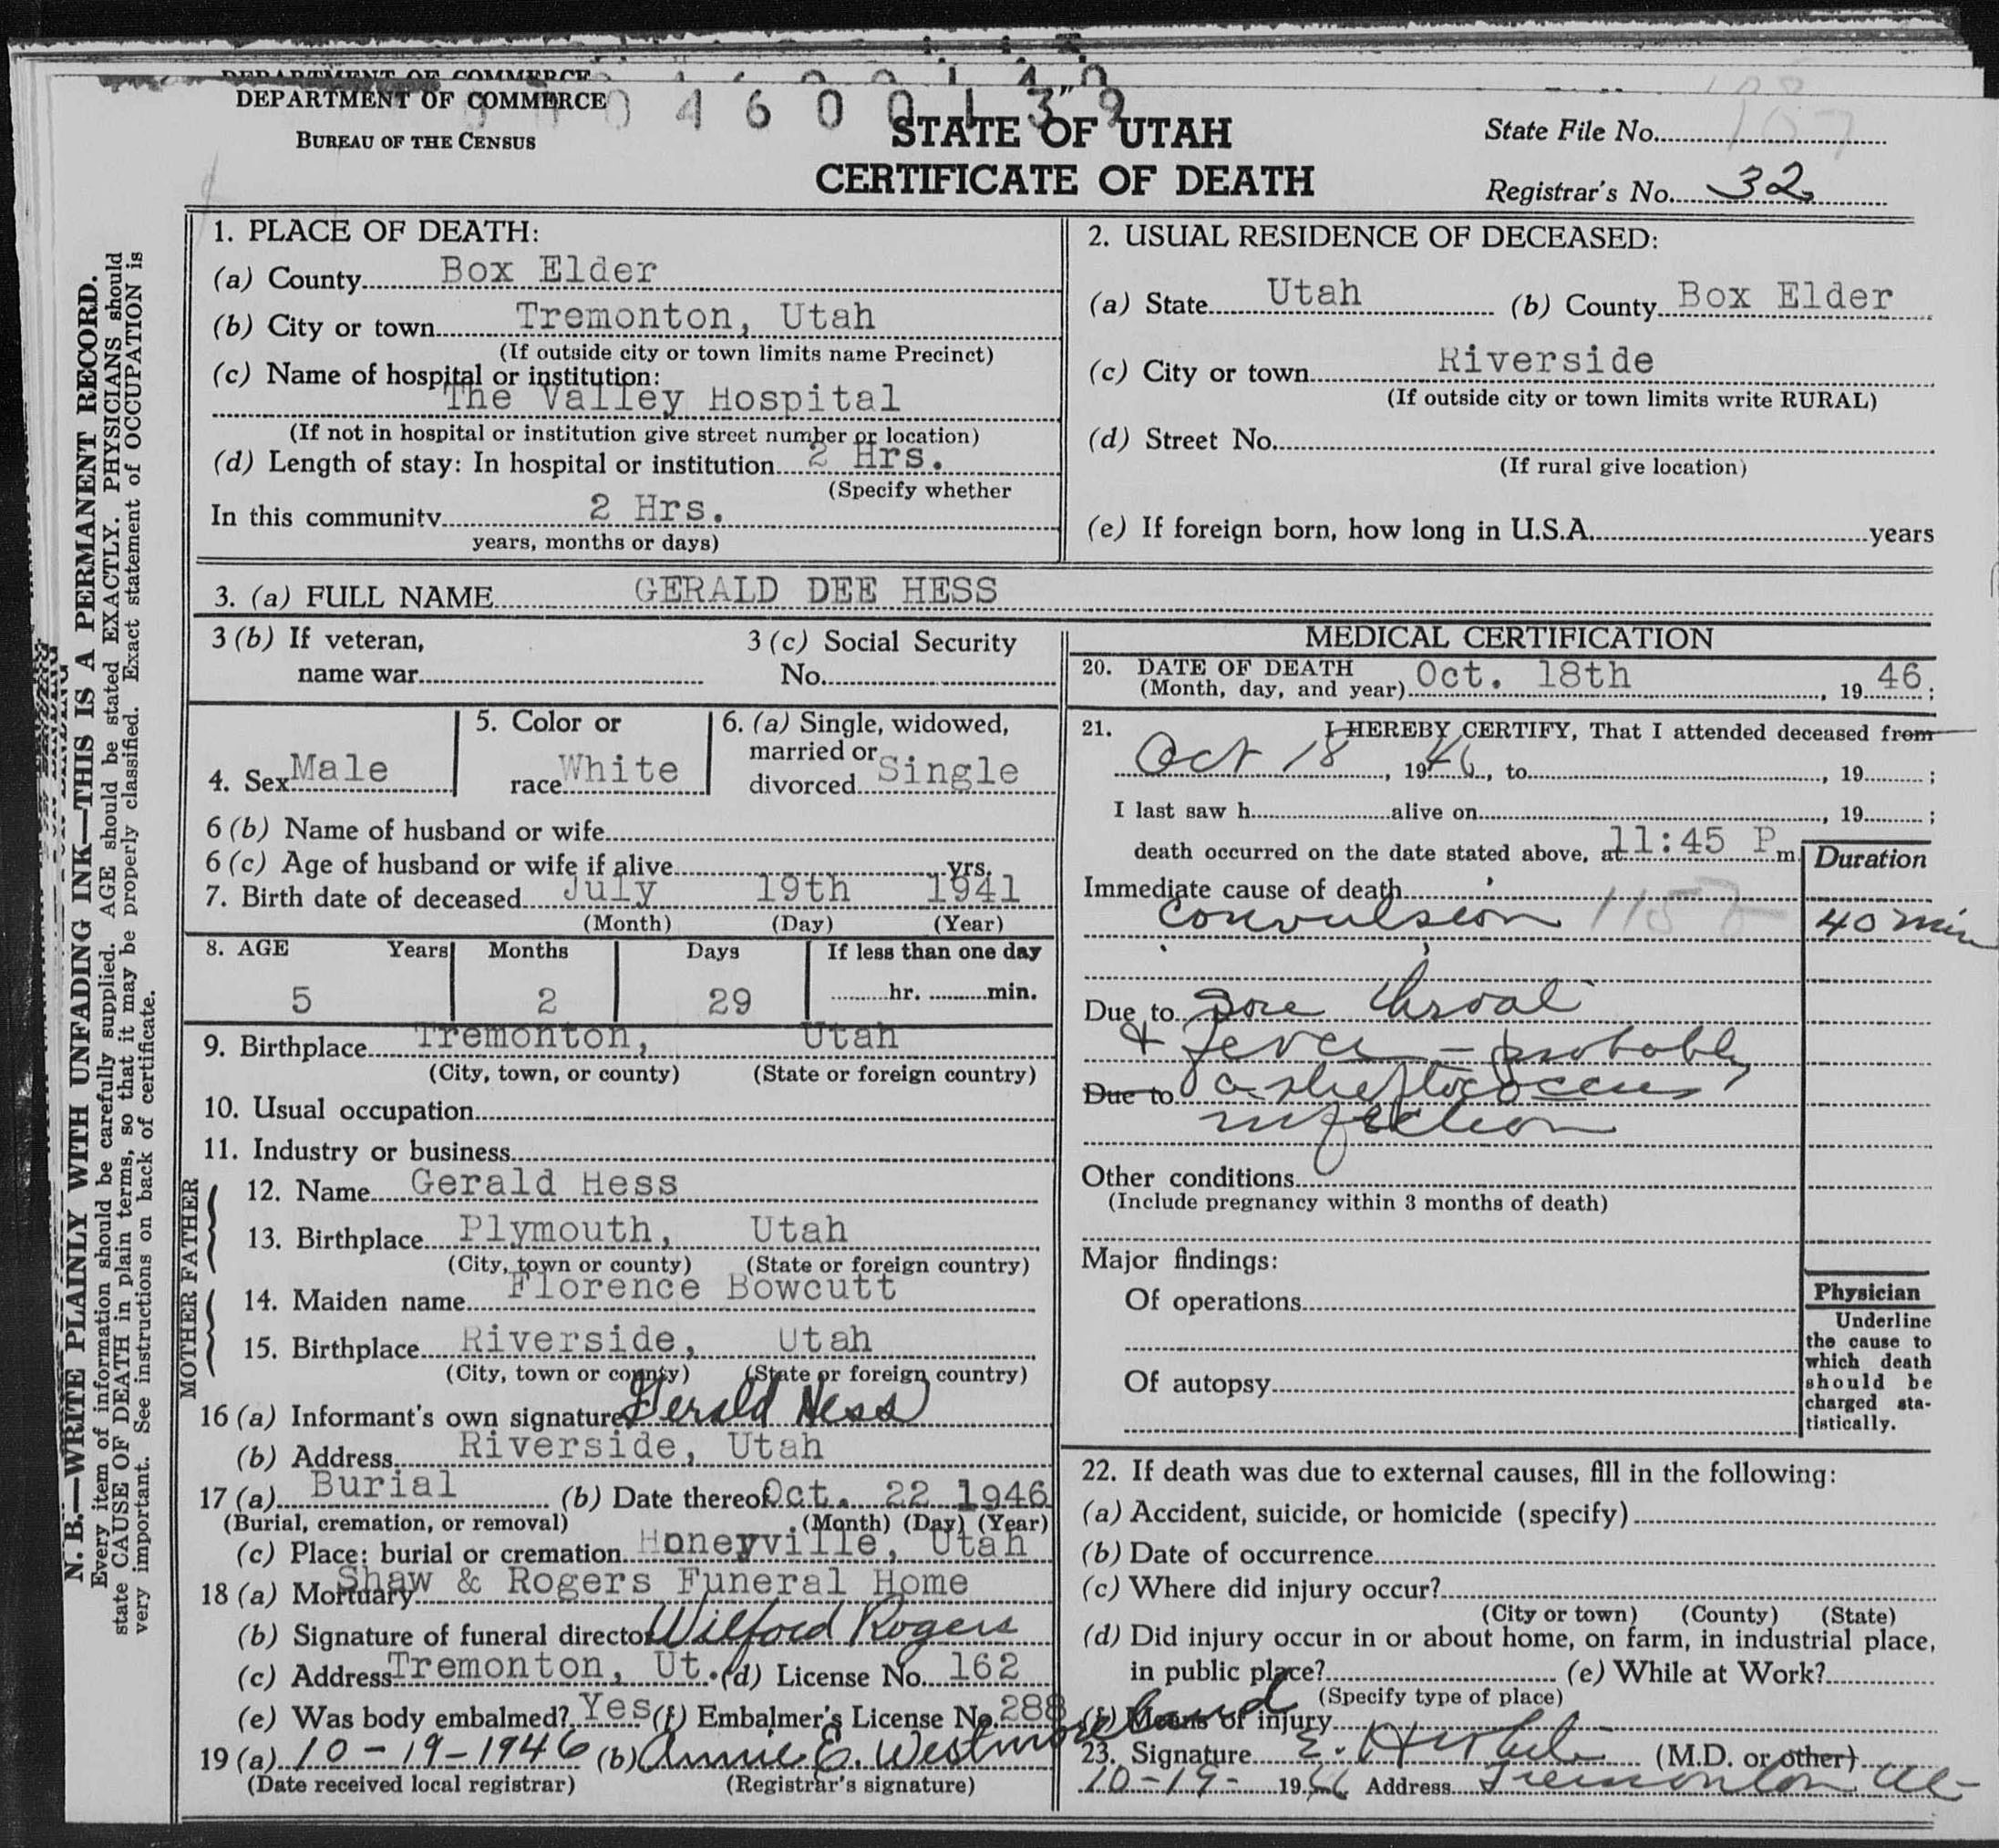 DEPARTMENT OF COMMERCE
DEPARTMENT OF COMMERCE
BUREAU OF THE CENSUS
0 4 6 0 0 1 3 9
STATE OF UTAH
CERTIFICATE OF DEATH
State File No.
Registrar's No. 32
N. B.—WRITE PLAINLY WITH UNFADING INK—THIS IS A PERMANENT RECORD.
Every item of information should be carefully supplied. AGE should be stated EXACTLY. PHYSICIANS should
state CAUSE OF DEATH in plain terms, so that it may be properly classified. Exact statement of OCCUPATION is
very important. See instructions on back of certificate.
1. PLACE OF DEATH:
(a) County Box Elder
(b) City or town Tremonton, Utah
(If outside city or town limits name Precinct)
(c) Name of hospital or institution:
The Valley Hospital
(If not in hospital or institution give street number or location)
(d) Length of stay: In hospital or institution 2 Hrs.
(Specify whether
In this community 2 Hrs.
years, months or days)
2. USUAL RESIDENCE OF DECEASED:
(a) State Utah (b) County Box Elder
(c) City or town Riverside
(If outside city or town limits write RURAL)
(d) Street No.
(If rural give location)
(e) If foreign born, how long in U.S.A. years
3. (a) FULL NAME GERALD DEE HESS
3 (b) If veteran,
name war
3 (c) Social Security
No.
4. Sex Male
5. Color or
race White
6. (a) Single, widowed,
married or
divorced Single
6 (b) Name of husband or wife
6 (c) Age of husband or wife if alive yrs.
7. Birth date of deceased July 19th 1941
(Month) (Day) (Year)
8. AGE Years Months Days If less than one day
5 2 29 hr. min.
9. Birthplace Tremonton, Utah
(City, town, or county) (State or foreign country)
10. Usual occupation
11. Industry or business
FATHER
12. Name Gerald Hess
13. Birthplace Plymouth, Utah
(City, town or county) (State or foreign country)
MOTHER
14. Maiden name Florence Bowcutt
15. Birthplace Riverside, Utah
(City, town or county) (State or foreign country)
16 (a) Informant's own signature Gerald Hess
(b) Address Riverside, Utah
17 (a) Burial (b) Date thereof Oct. 22 1946
(Burial, cremation, or removal) (Month) (Day) (Year)
(c) Place: burial or cremation Honeyville, Utah
18 (a) Mortuary Shaw & Rogers Funeral Home
(b) Signature of funeral director Wilford Rogers
(c) Address Tremonton, Ut. (d) License No. 162
(e) Was body embalmed? Yes (f) Embalmer's License No. 288
19 (a) 10-19-1946 (b) Annie E. Westmoreland
(Date received local registrar) (Registrar's signature)
MEDICAL CERTIFICATION
20. DATE OF DEATH
(Month, day, and year) Oct. 18th, 1946;
21. I HEREBY CERTIFY, That I attended deceased from
Oct 18, 1946, to , 19 ;
I last saw h alive on , 19 ;
death occurred on the date stated above, at 11:45 P m.
Duration
Immediate cause of death
convulsion 40 min
Due to sore throat
& fever - probably
Due to a streptococcus
infection
Other conditions
(Include pregnancy within 3 months of death)
Major findings:
Of operations
Of autopsy
Physician
Underline
the cause to
which death
should be
charged sta-
tistically.
22. If death was due to external causes, fill in the following:
(a) Accident, suicide, or homicide (specify)
(b) Date of occurrence
(c) Where did injury occur?
(City or town) (County) (State)
(d) Did injury occur in or about home, on farm, in industrial place,
in public place? (e) While at Work?
(Specify type of place)
(f) Means of injury
23. Signature E. (M.D. or other)
10-19- 1946 Address Tremonton Ut